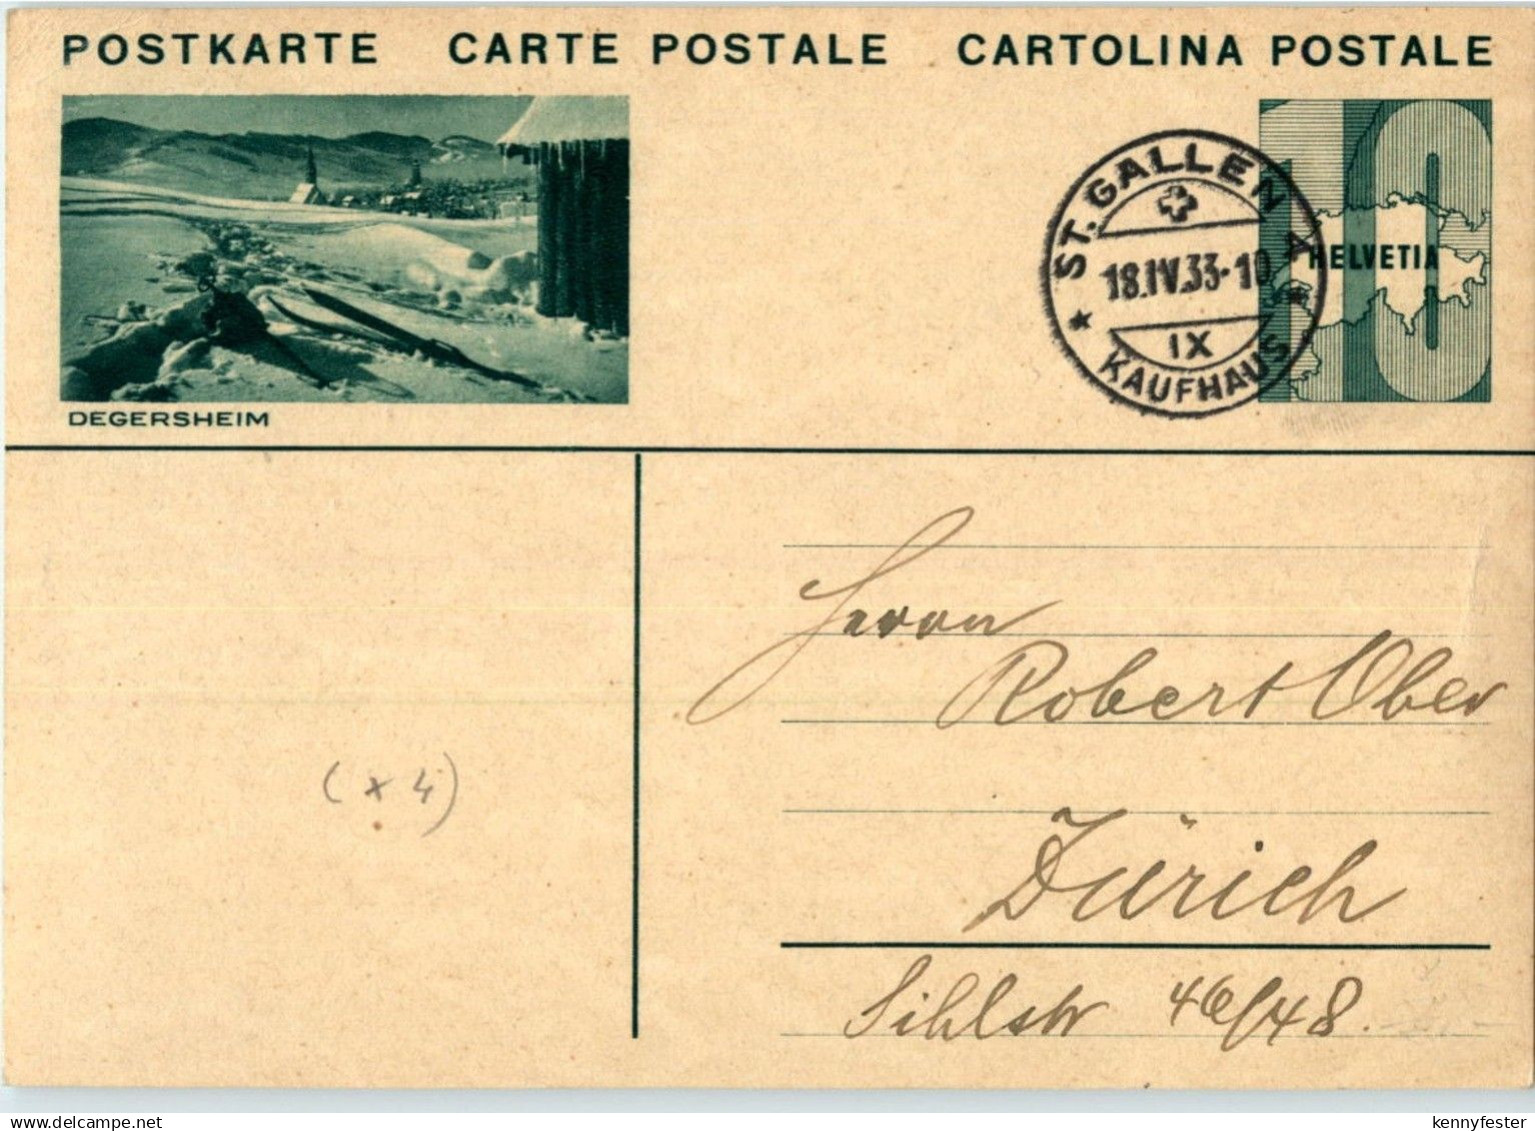 POSTKARTE CARTE POSTALE CARTOLINA POSTALE
10
HELVETIA
ST. GALLEN
18.IV.33-10
IX
KAUFHAUS
DEGERSHEIM
Herrn
Robert Ober
Zürich
Sihlstr 46/48.
(x 4)
delcampe.net
kennyfester